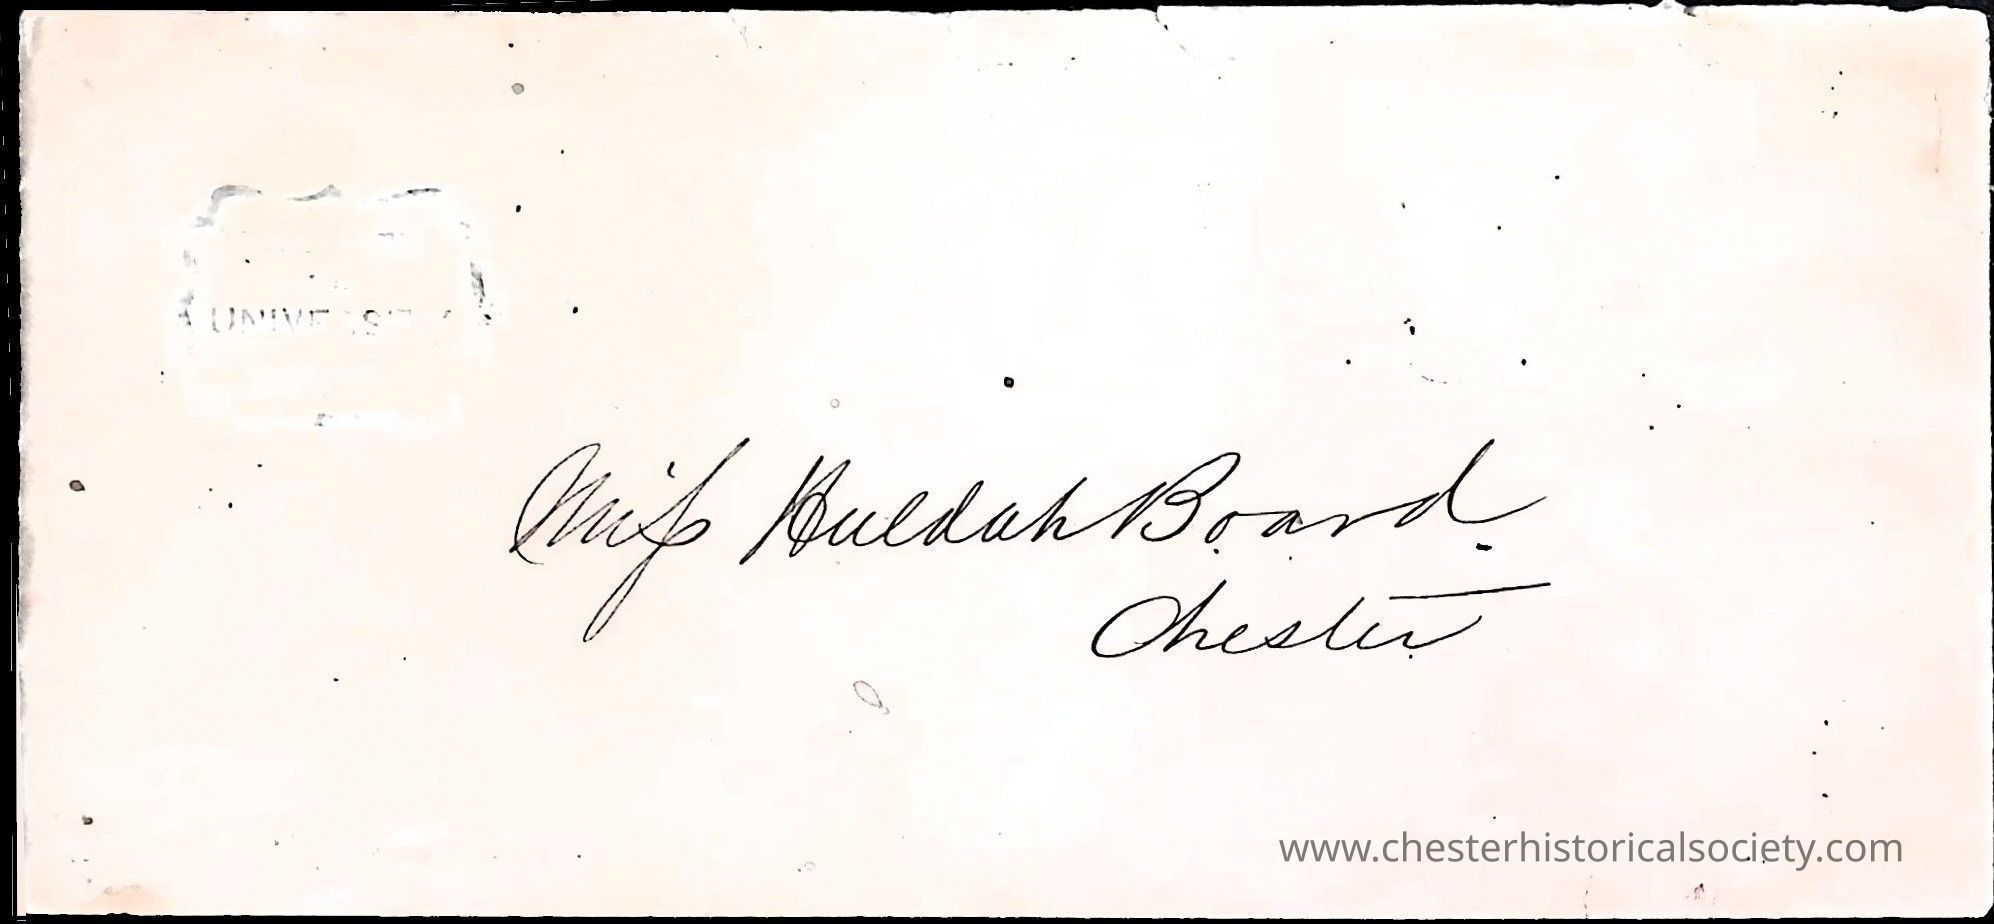 Miss Huldah Board.
Chester
www.chesterhistoricalsociety.com